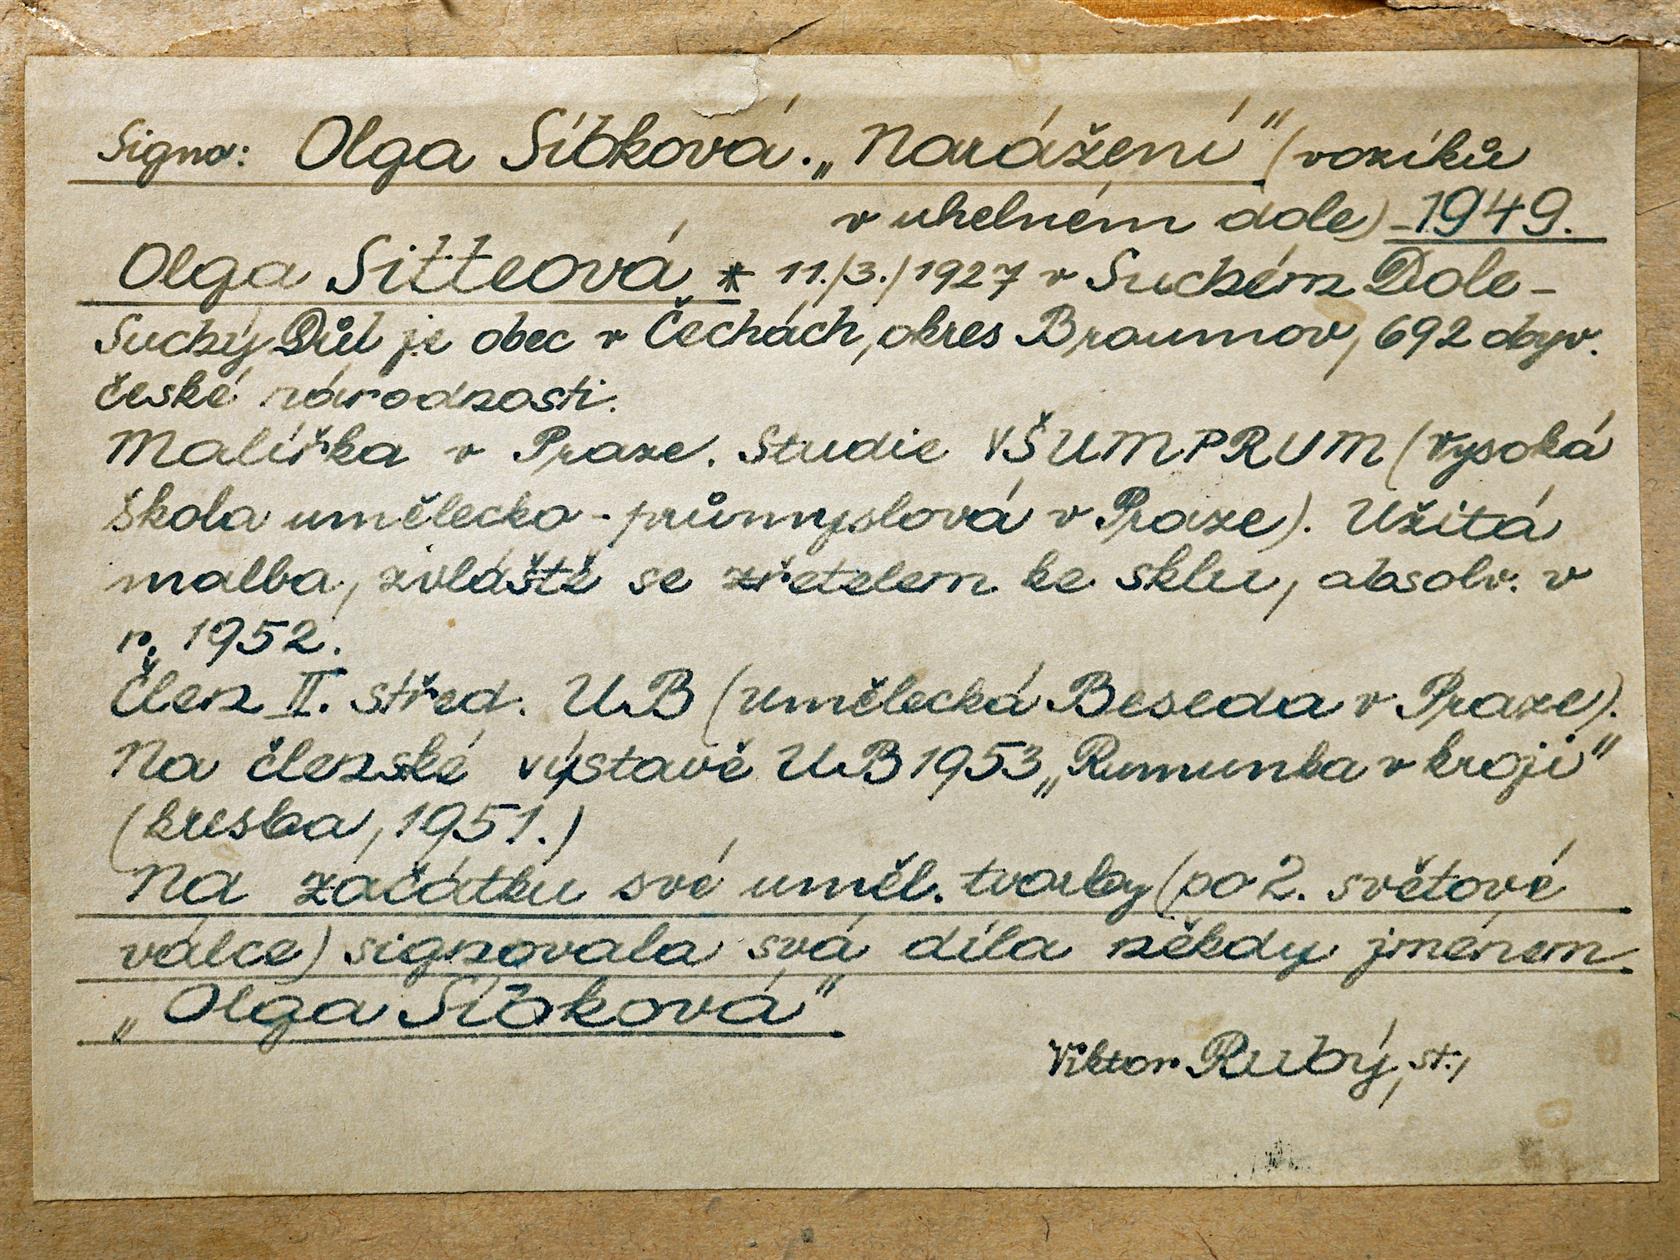 Signo: Olga Síbková. „Narážení" (vozíků
v uhelném dole) - 1949.
Olga Sitteová * 11./3./1927 v Suchém Dole -
Suchý Důl je obec v Čechách, okres Broumov, 692 obyv.
české národnosti.
Malířka v Praze. Studie VŠUMPRUM (Vysoká
škola umělecko-průmyslová v Praze). Užitá
malba, zvláště se zřetelem ke sklu, absolv. v
r. 1952.
Člen II. střed. UB (Umělecká Beseda v Praze).
Na členské výstavě UB 1953 „Rumunka v kroji"
(kresba, 1951.)
Na začátku své uměl. tvorby (po 2. světové
válce) signovala svá díla někdy jménem
„Olga Síbková"
Viktor Rubý, st.,